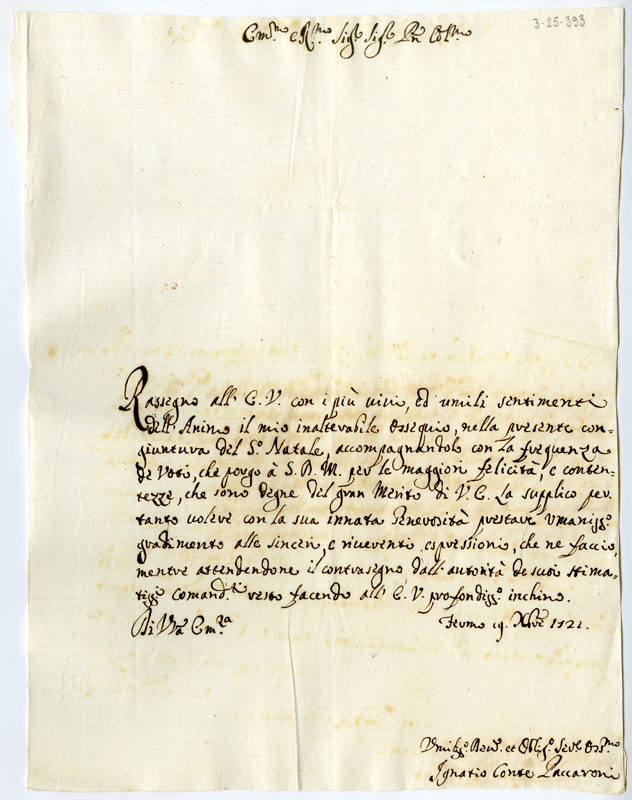 3-25-393
Em.mo e R.mo Sig.r Sig.r P.ron Col.mo
Rassegno all' E. V. con i più vivi, ed umili sentimenti
dell' Animo il mio inalterabile ossequio, nella presente con=
giuntura del S.o Natale, accompagnandolo con la frequenza
de Voti, che porgo à S. D. M. per le maggiori felicità, e conten=
tezze, che sono degne del gran Merito di V. E. La supplico per
tanto volere con la sua innata Generosità prestare Vmaniss.o
gradimento alle sinceri, e riverenti espressioni, che ne faccio,
mentre attendendone il contrasegno dall' autorità de suoi stima=
tiss.i comand.ti resto facendo all' E. V. profondiss.o inchino.
Di V.ra Em.za
Fermo 19. Xbre 1721.
Vmiliss.o Dev.o et Obl.g.o Ser.re Oss.mo
Ignatio Conte Paccaroni